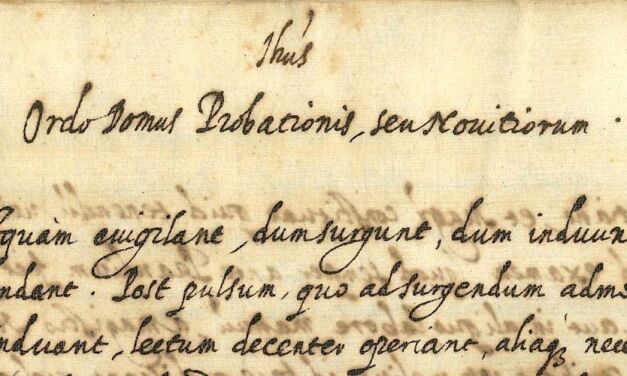 Ihus
Ordo Domus Probationis, seu Novitiorum.
squàm evigilant, dum surgunt, dum induun
ndant. Post pulsum, quo ad surgendum admo
nduant, lectum decenter operiant, aliaq. nece